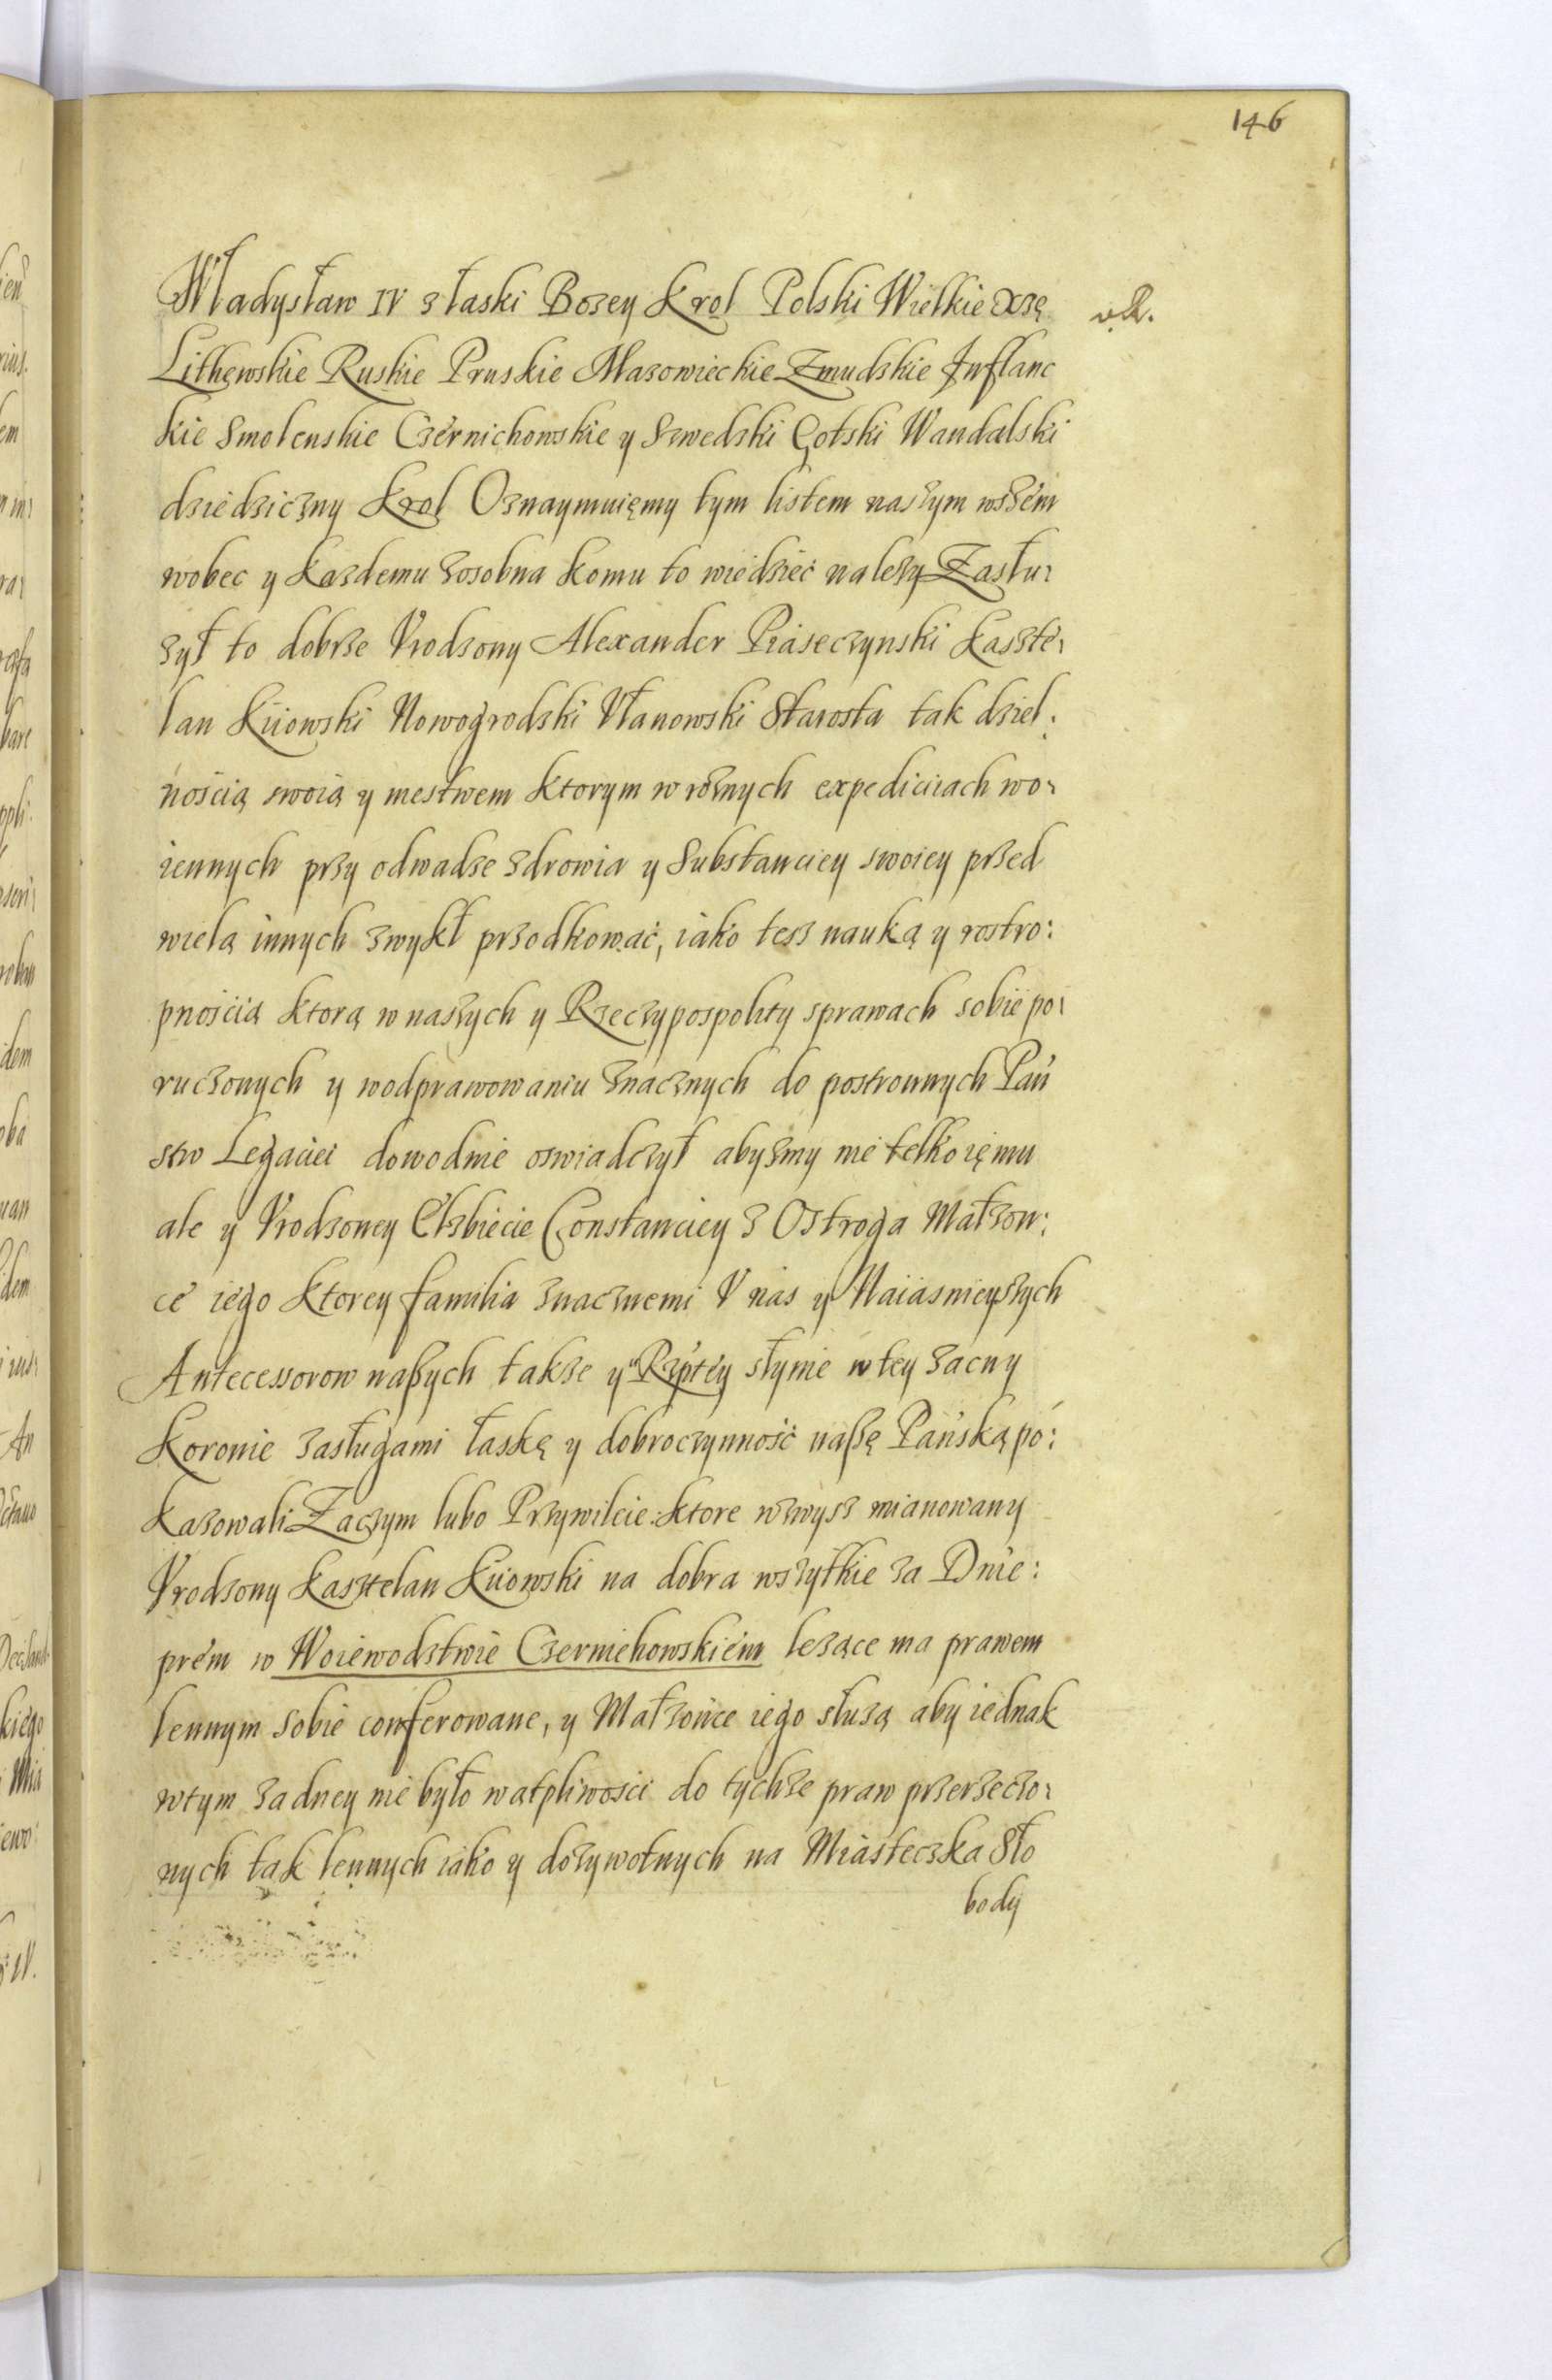 146
Władysław IV z łaski Bozey Krol Polski Wielkie Xzę
v. R.
Lithewskie Ruskie Pruskie Mazowieckie Zmudzkie Inflanc
kie Smolenskie Czernichowskie y Szwedzki Gotski Wandalski
dziedziczny Krol Oznaymuięmy tym listem naszym wszem
wobec y kazdemu zosobna komu to wiedzieć nalezy Zasłu:
zył to dobrze Vrodzony Alexander Piaseczynski kaszte:
lan Kiiowski Nowogrodski Vłanowski Starosta tak dziel:
nością swoią y mestwem ktorym w roznych expediciiach wo:
iennych przy odwadze zdrowia y Substanciey swoiey przed
wielą innych zwykł przodkować, iako tesz nauką y rostro:
pnością ktorą w naszych y Rzeczypospolity sprawach sobie po:
ruczonych y wodprawowaniu znacznych do postronnych Pań
stw Legaciei dowodnie oswiadczył abyzmy nie telko ięmu
ale y Vrodzoney Elzbiecie Constanciey z Ostroga Małzon:
ce iego ktorey familia znacznemi V nas y Naiasnieyszych
Antecessorow naszych takze y Rzptey słynie w tey zacny
Koronie zasługami łaskę y dobroczynność naszę Pańską po:
kazowali Zaczym lubo Przywileie ktore wzwysz mianowany
Vrodzony kasztelan Kiiowski na dobra wszytkie za Dnie:
prem w Woiewodstwie Czerniehowskiem lezące ma prawem
lennym sobie conferowane, y Małzonce iego słuzą aby iednak
wtym zadney nie było wątpliwości do tychze praw przerzeczo:
nych tak lennych iako y dozywotnych na Miasteczka Sło
body